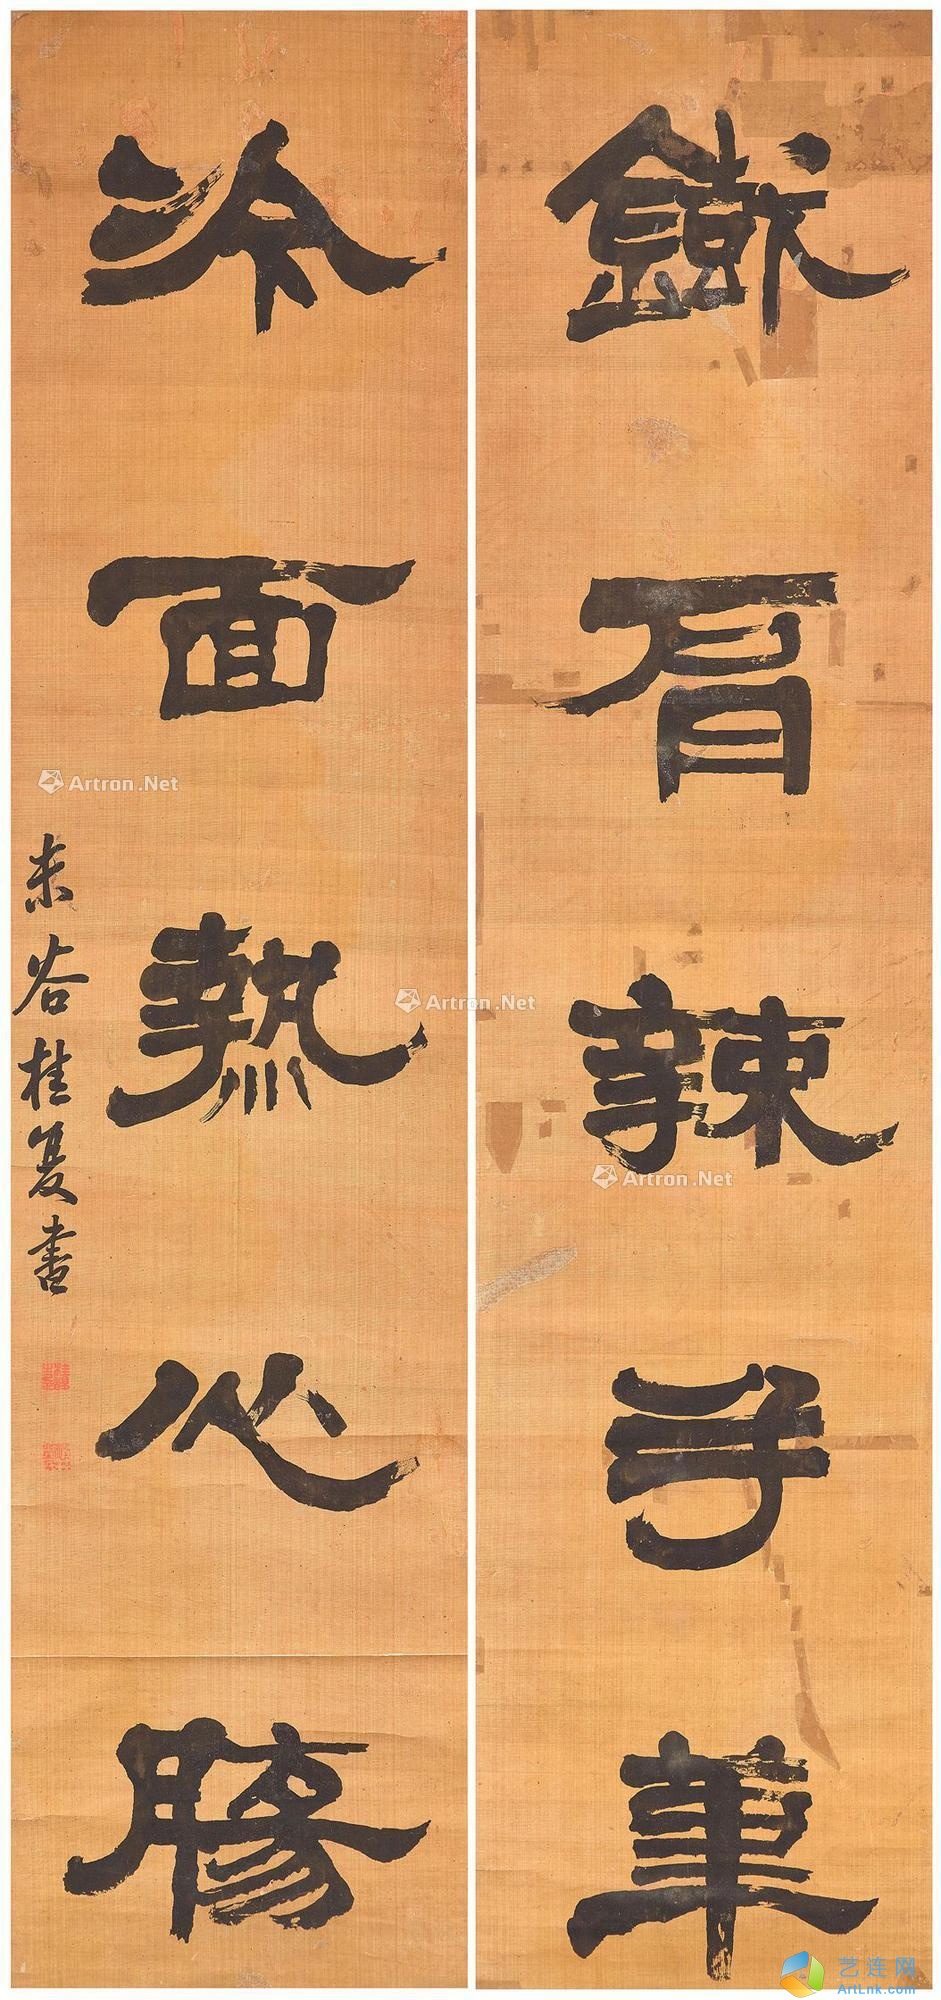 鐵肩辣手筆
冷面熱心腸
未谷桂馥書
Artron.Net
Artron.Net
Artron.Net
艺连网
ArtLnk.com